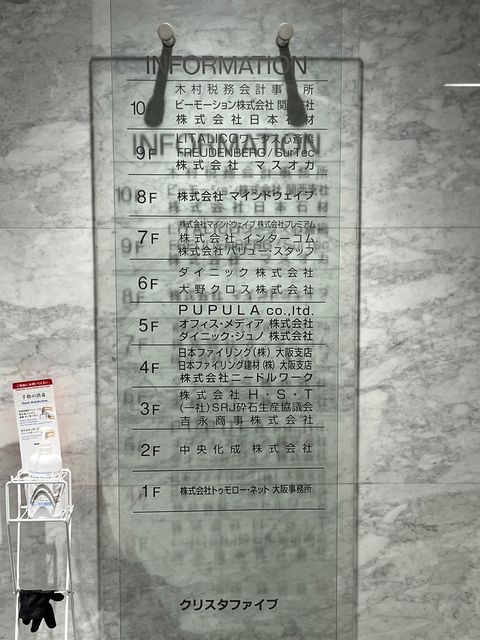 INFORMATION
木村税務会計事 所
10 ビーモーション株式会社 関
株式会社日本石材
LITALICOワークス心斎橋
9F FREUDENBERG/SurTec
株式会社 マスオカ
8F 株式会社 マインドウェイブ
株式会社マインドウェイブ 株式会社プレミアム
7F 株式会社 インターコム
株式会社バリュー・スタッフ
ダイニック 株式会社
6F
大野クロス株式会社
PUPULA co.,ltd.
5F オフィス・メディア 株式会社
ダイニック・ジュノ 株式会社
日本ファイリング(株) 大阪支店
4F 日本ファイリング建材(株) 大阪支店
株式会社ニードルワーク
株式会社 H・S・T
3F (一社)SRJ砕石生産協議会
吉永商事株式会社
2F 中央化成 株式会社
1F 株式会社トゥモロー・ネット 大阪事務所
クリスタファイブ
手指の消毒
Hand disinfection